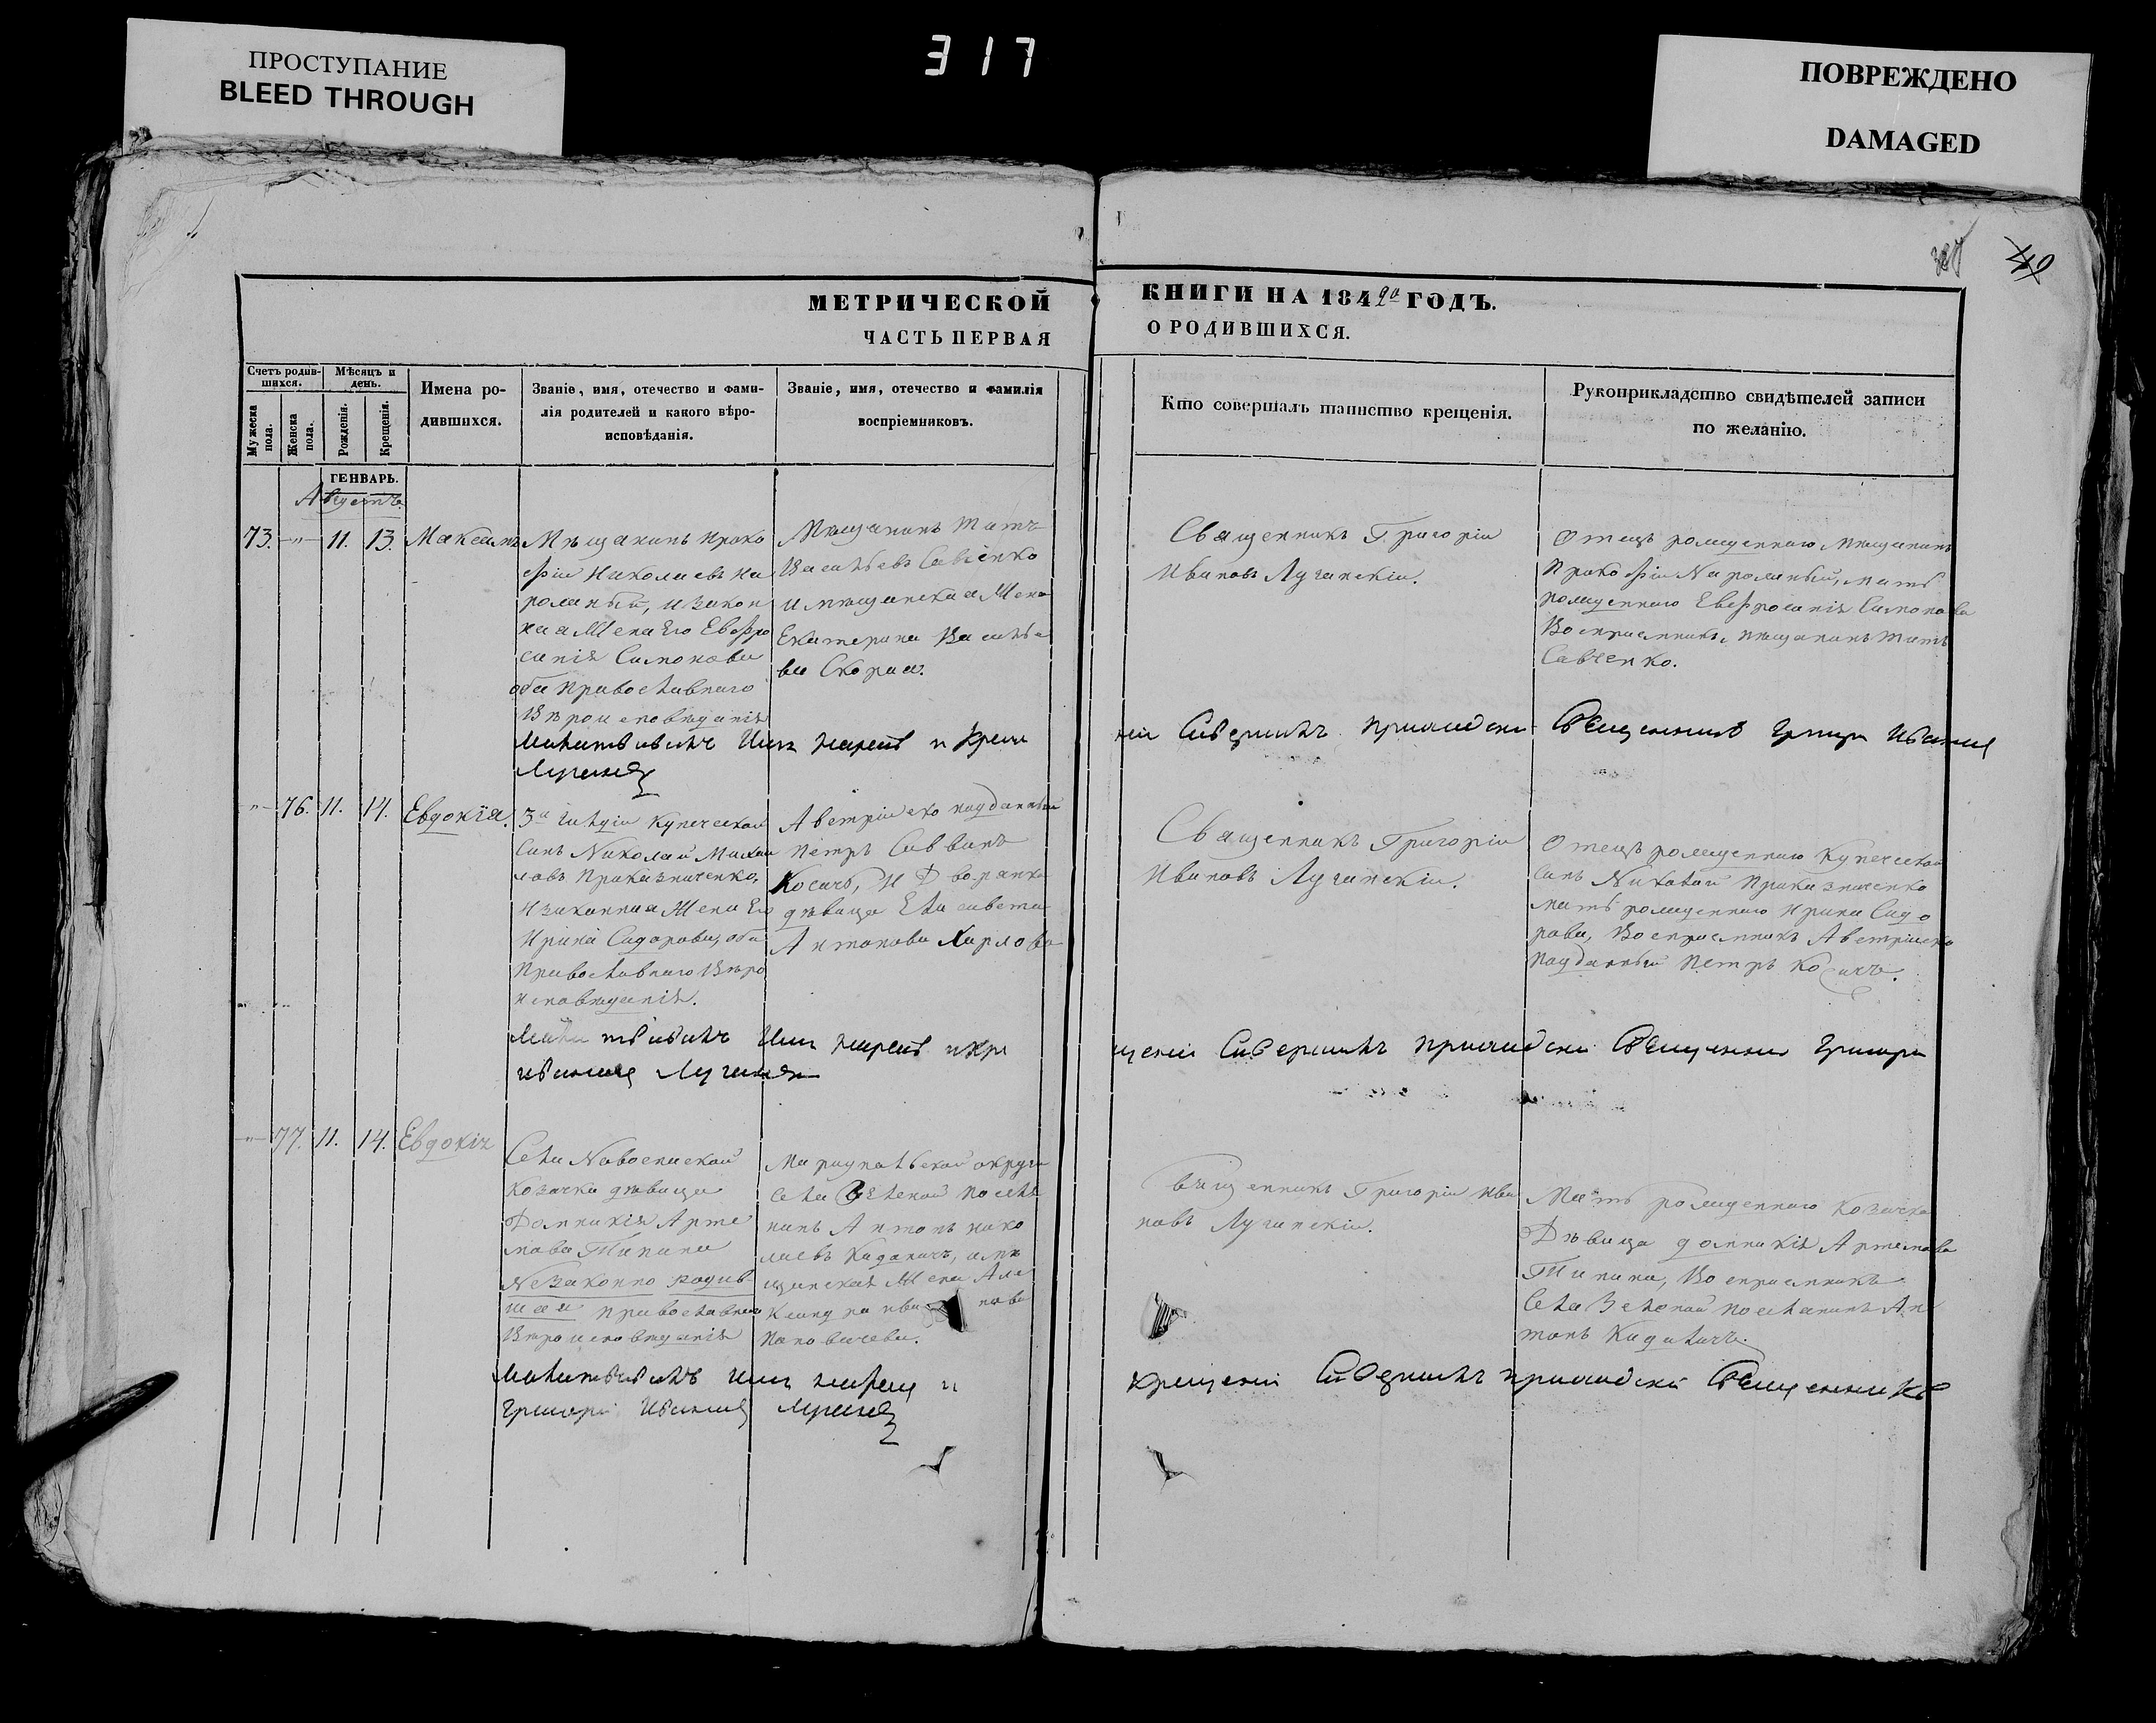 ПРОСТУПАНИЕ
BLEED THROUGH
317
ПОВРЕЖДЕНО
DAMAGED
МЕТРИЧЕСКОЙ
ЧАСТЬ ПЕРВАЯ
КНИГИ НА 1842го ГОДЪ.
О РОДИВШИХСЯ.
Счетъ родив-
шихся.
Мужеска
пола.
Женска
пола.
Мѣсяцъ и
день.
Рожденія.
Крещенія.
Имена ро-
дившихся.
Званіе, имя, отечество и фами-
лія родителей и какого вѣро-
исповѣданія.
Званіе, имя, отечество и фамилія
воспріемниковъ.
Кто совершалъ таинство крещенія.
Рукоприкладство свидѣтелей записи
по желанію.
ГЕНВАРЬ.
Августъ.
73. -"- 11. 13. Максимъ
Мѣщанинъ Проко
фій Николаевъ На
рожный, и закон
ная Жена Его Евфро
синія Симонова
оба Православнаго
Вѣроисповѣданія
Мѣщанинъ Титъ
Васильевъ Савченко
и мѣщанская Жена
Екатерина Василье
ва Скорая.
Священникъ Григорій
Ивановъ Лучинскій.
Отецъ рожденнаго мѣщанинъ
Прокофій мать
рожденнаго Евфросинія Симонова
Воспріемникъ, мѣщанинъ Титъ
Савченко.
Молитвовалъ Имя нарекъ и крещеніе Совершилъ приходскій Священникъ Григорій Ивановъ
Лучинскій
"- 76. 11. 14. Евдокія.
3й Гильдіи Купеческой
Сынъ Николай Михай
ловъ Приказниченко,
и законная Жена Его
Ирина Сидорова, оба
Православнаго Вѣро
исповѣданія.
Австрійско подданный
Петръ Саввинъ
Косичъ, и Дворянка
дѣвица Елисавета
Антонова Харлова
Священникъ Григорій
Ивановъ Лучинскій.
Отецъ рожденнаго Купеческой
Сынъ Николай Приказниченко
мать рожденнаго Ирина Сидо
рова, Воспріемникъ Австрійско
подданный Петръ Косичъ.
Молитвовалъ Имя нарекъ и крещеніе Совершилъ приходскій Священникъ Григорій
Ивановъ Лучинскій
-"- 77. 11. 14. Евдокія
Села Новоспаской
Козачка дѣвица
Домникія Арте
мова Типина
Незаконно родив
шая Православнаго
Вѣроисповѣданія
Маріупольской округи
Села Зеленой поселя
нинъ Антонъ Нико
лаевъ мѣ
щанская Жена Але
ксандра
Поповичева.
Священникъ Григорій Ива
новъ Лучинскій.
Мать рожденнаго Козачка
Дѣвица Домникія Артемова
Типина, Воспріемникъ
Села Зеленой поселянинъ Ан
тонъ
Молитвовалъ Имя нарекъ и крещеніе Совершилъ приходскій Священникъ
Григорій Ивановъ Лучинскій